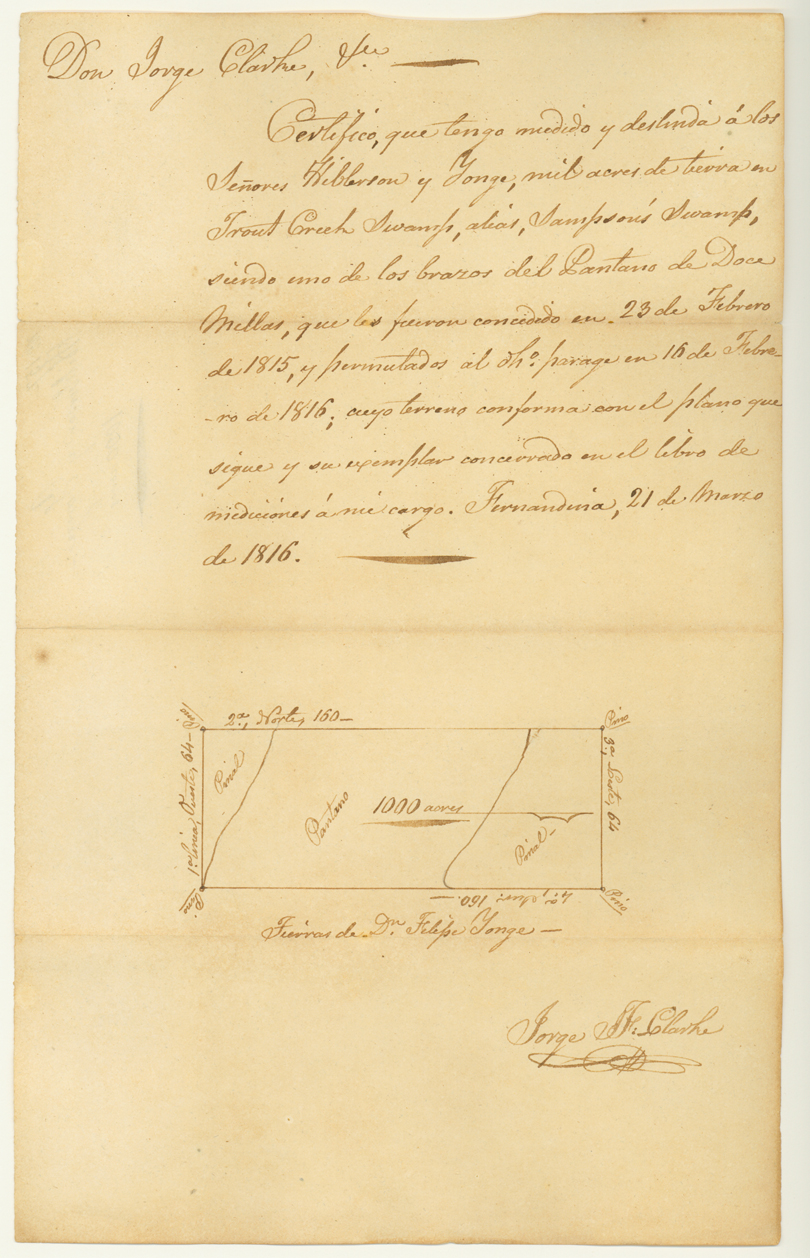 Don Jorge Clarke, &ca
Certifico, que tengo medido y deslindá á los
Señores Hibberson y Yonge, mil acres de tierra en
Trout Creek Swamp, alias, Sampson's Swamp,
siendo uno de los brazos del Pantano de Doce
Millas, que les fueron concedido en 23 de Febrero
de 1815, y permutados al dho. parage en 16 de Febre-
-ro de 1816; cuyo terreno conforma con el plano que
sigue y su exemplar concerrado en el libro de
mediciónes á mi cargo. Fernandina, 21 de Marzo
de 1816.
Pino
2a, Norte, 160
Pino
1a Linea, Oueste, 64
Pinal
Pantano
1000 acres
Pinal
3a Leste, 64
Pino
4a, Sur, 160.
Pino
Tierras de Dn. Felipe Yonge
Jorge J. F. Clarke